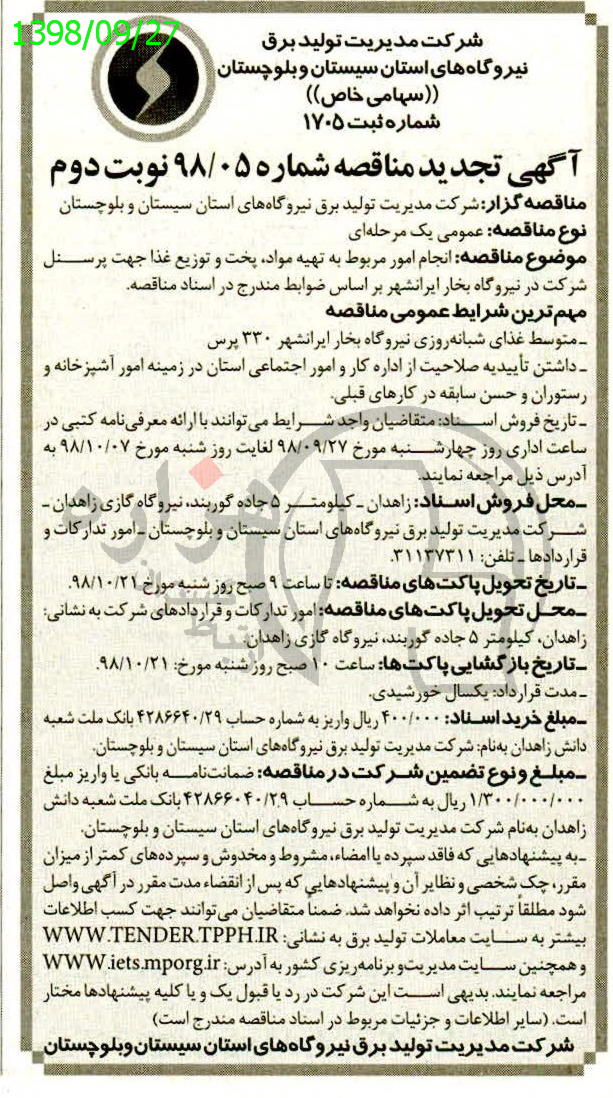 1398/09/27
شرکت مدیریت تولید برق
نیروگاه‌های استان سیستان و بلوچستان
((سهامی خاص))
شماره ثبت ۱۷۰۵
آگهی تجدید مناقصه شماره ۹۸/۰۵ نوبت دوم
مناقصه گزار: شرکت مدیریت تولید برق نیروگاه‌های استان سیستان و بلوچستان
نوع مناقصه: عمومی یک مرحله‌ای
موضوع مناقصه: انجام امور مربوط به تهیه مواد، پخت و توزیع غذا جهت پرسنل
شرکت در نیروگاه بخار ایرانشهر بر اساس ضوابط مندرج در اسناد مناقصه.
مهم‌ترین شرایط عمومی مناقصه
ـ متوسط غذای شبانه‌روزی نیروگاه بخار ایرانشهر ۳۳۰ پرس
ـ داشتن تأییدیه صلاحیت از اداره کار و امور اجتماعی استان در زمینه امور آشپزخانه و
رستوران و حسن سابقه در کارهای قبلی.
ـ تاریخ فروش اسناد: متقاضیان واجد شرایط می‌توانند با ارائه معرفی‌نامه کتبی در
ساعت اداری روز چهارشنبه مورخ ۹۸/۰۹/۲۷ لغایت روز شنبه مورخ ۹۸/۱۰/۰۷ به
آدرس ذیل مراجعه نمایند.
ـ محل فروش اسناد: زاهدان ـ کیلومتر ۵ جاده گوربند، نیروگاه گازی زاهدان ـ
شرکت مدیریت تولید برق نیروگاه‌های استان سیستان و بلوچستان ـ امور تدارکات و
قراردادها ـ تلفن: ۳۱۱۳۷۳۱۱.
ـ تاریخ تحویل پاکت‌های مناقصه: تا ساعت ۹ صبح روز شنبه مورخ ۹۸/۱۰/۲۱.
ـ محل تحویل پاکت‌های مناقصه: امور تدارکات و قراردادهای شرکت به نشانی:
زاهدان، کیلومتر ۵ جاده گوربند، نیروگاه گازی زاهدان.
ـ تاریخ بازگشایی پاکت‌ها: ساعت ۱۰ صبح روز شنبه مورخ: ۹۸/۱۰/۲۱.
ـ مدت قرارداد: یکسال خورشیدی.
ـ مبلغ خرید اسناد: ۴۰۰/۰۰۰ ریال واریز به شماره حساب ۴۲۸۶۶۴۰/۲۹ بانک ملت شعبه
دانش زاهدان به‌نام: شرکت مدیریت تولید برق نیروگاه‌های استان سیستان و بلوچستان.
ـ مبلغ و نوع تضمین شرکت در مناقصه: ضمانت‌نامه بانکی یا واریز مبلغ
۱/۳۰۰/۰۰۰/۰۰۰ ریال به شماره حساب ۴۲۸۶۶۰۴۰/۲۹ بانک ملت شعبه دانش
زاهدان به‌نام شرکت مدیریت تولید برق نیروگاه‌های استان سیستان و بلوچستان.
ـ به پیشنهادهایی که فاقد سپرده یا امضاء، مشروط و مخدوش و سپرده‌های کمتر از میزان
مقرر، چک شخصی و نظایر آن و پیشنهادهایی که پس از انقضاء مدت مقرر در آگهی واصل
شود مطلقاً ترتیب اثر داده نخواهد شد. ضمناً متقاضیان می‌توانند جهت کسب اطلاعات
بیشتر به سایت معاملات تولید برق به نشانی: WWW.TENDER.TPPH.IR
و همچنین سایت مدیریت و برنامه‌ریزی کشور به آدرس: WWW.iets.mporg.ir
مراجعه نمایند. بدیهی است این شرکت در رد یا قبول یک و یا کلیه پیشنهادها مختار
است. (سایر اطلاعات و جزئیات مربوط در اسناد مناقصه مندرج است)
شرکت مدیریت تولید برق نیروگاه‌های استان سیستان و بلوچستان